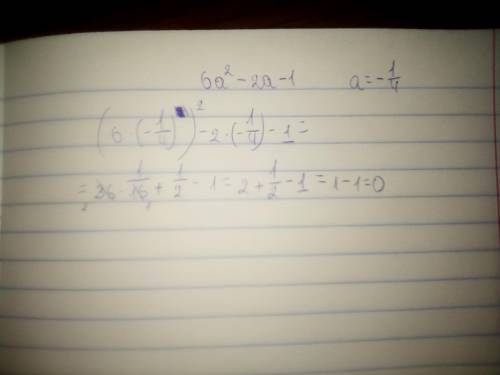 6a² - 2a - 1 a = -1/4
(6 · (-1/4))² - 2 · (-1/4) - 1 =
= 36 · 1/16 + 1/2 - 1 = 2 + 1/2 - 1 = 1 - 1 = 0